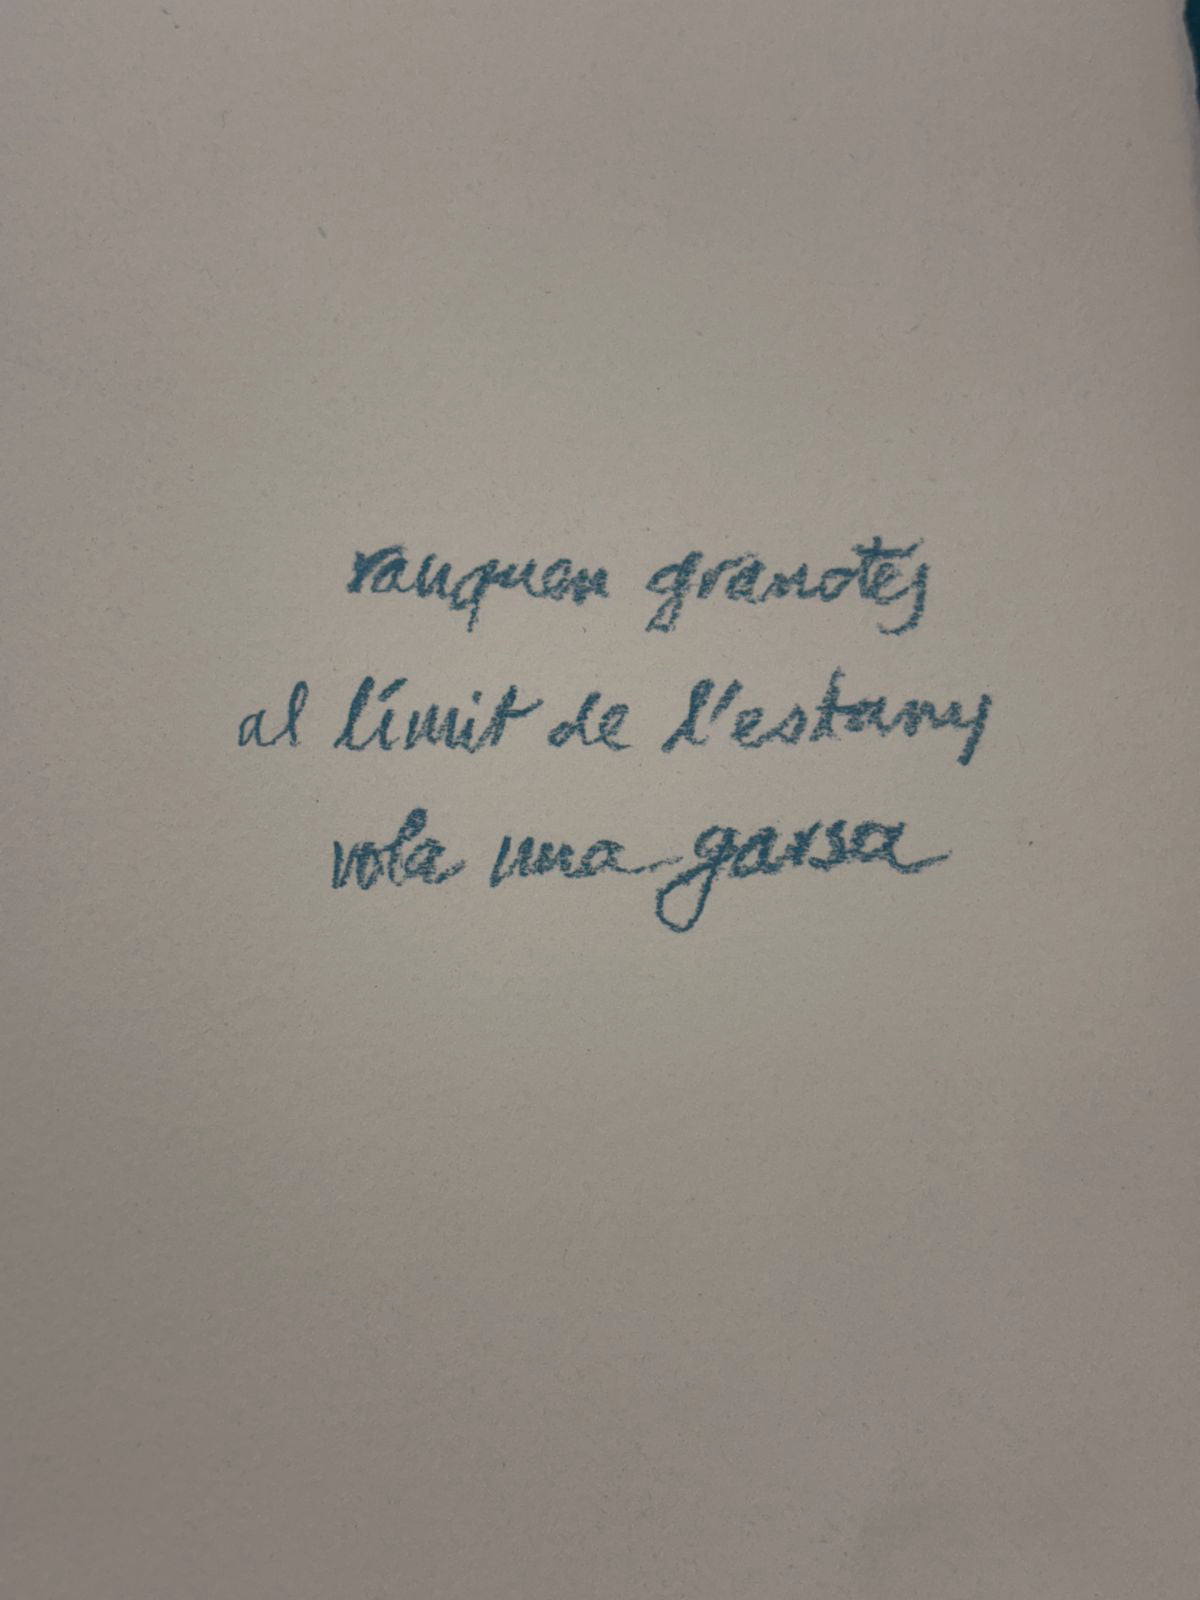 rauquen granotes
al límit de l'estany
vola una garsa